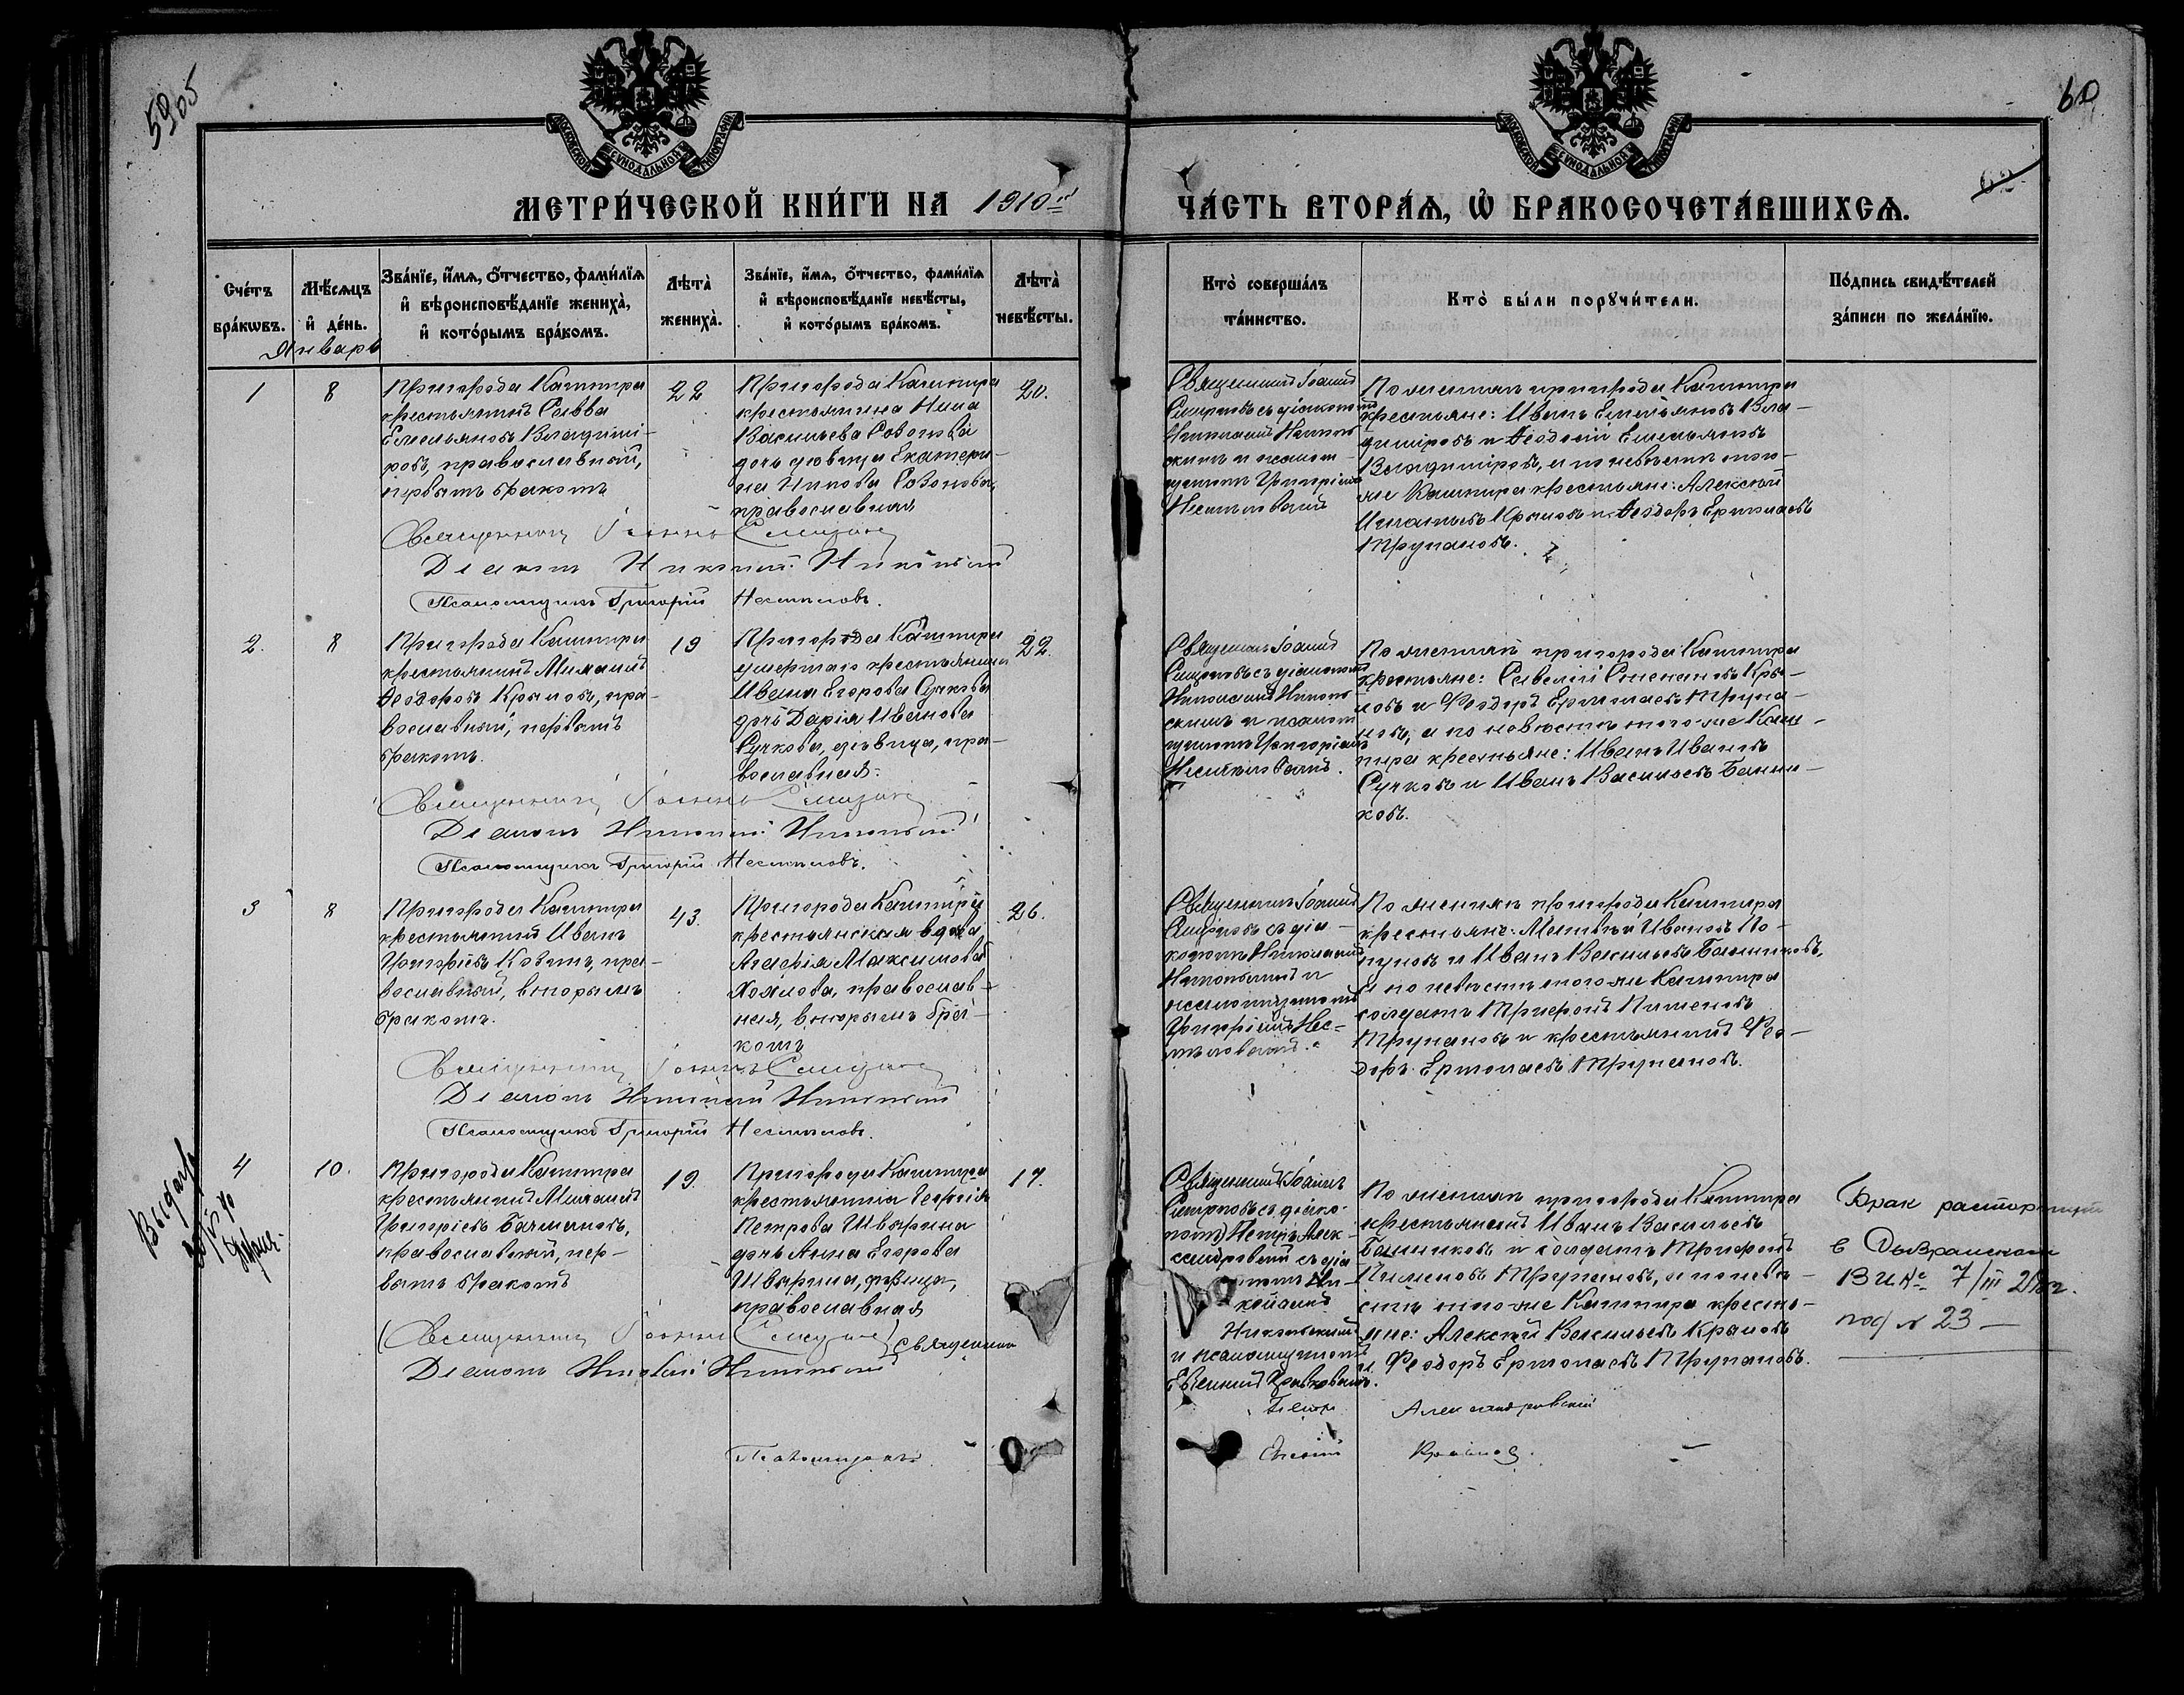 5905
60
62
МОСКОВСКОЙ СѴНОДАЛЬНОЙ ТИПОГРАФІИ
МОСКОВСКОЙ СѴНОДАЛЬНОЙ ТИПОГРАФІИ
МЕТРИ́ЧЕСКОЙ КНИ́ГИ НА 1910й
ЧА́СТЬ ВТОРА́Ѧ, Ѽ БРАКОСОЧЕТА́ВШИХСѦ.
Сче́тъ бра́кѡвъ.
Мѣ́сѧцъ и҆ де́нь.
Зва́нїе, и҆́мѧ, ѻ҆́тчество, фами́лїѧ и҆ вѣроисповѣ́данїе жениха̀, и҆ кото́рымъ бра́комъ.
Лѣта̀ жениха̀.
Зва́нїе, и҆́мѧ, ѻ҆́тчество, фами́лїѧ и҆ вѣроисповѣ́данїе невѣ́сты, и҆ кото́рымъ бра́комъ.
Лѣта̀ невѣ́сты.
Кто̀ соверша́лъ та́инство.
Кто̀ бы́ли порꙋчи́тели.
По́дпись свидѣ́телей за́писи по жела́нїю.
Январь
1
8
Пригорода Кашпира
крестьянинъ Савва
Емельяновъ Владимі-
ровъ, православный,
первымъ бракомъ
22
Пригорода Кашпира
крестьянина
Васильева
дочь дѣвица Екатери-
на
православная
20.
Священникъ Іоаннъ
Смирновъ съ діакономъ
Николаемъ Николь-
скимъ и псалом-
щикомъ Григоріемъ
По женихѣ пригорода Кашпира
крестьяне: Иванъ Емельяновъ Вла-
диміровъ и Ѳеодосій Емельяновъ
Владиміровъ, а по невѣстѣ того-
же Кашпира крестьяне: Алексѣй
Игнатьевъ Крыловъ и Ѳеодоръ Ермолаевъ
Трупановъ.
Священникъ Іоаннъ Смирновъ
Діаконъ Николай Никольскій
Псаломщикъ Григорій
2.
8
Пригорода Кашпира
крестьянинъ Михаилъ
Ѳеодоровъ Крыловъ, пра-
вославный, первымъ
бракомъ.
19
Пригорода Кашпира
умершаго крестьянина
Ивана Егорова Сучкова
дочь Дарія Иванова
Сучкова, дѣвица, пра-
вославная.
22.
Священникъ Іоаннъ
Смирновъ съ діакономъ
Николаемъ Николь-
скимъ и псалом-
щикомъ Григоріемъ
По женихѣ пригорода Кашпира
крестьяне: Савелій Степановъ Кры-
ловъ и Ѳеодоръ Ермолаевъ Трупа-
новъ, а по невѣстѣ того-же Каш-
пира крестьяне: Иванъ Ивановъ
Сучковъ и Иванъ Васильевъ Банни-
ковъ.
Священникъ Іоаннъ Смирновъ
Діаконъ Николай Никольскій
Псаломщикъ Григорій
3
8
Пригорода Кашпира
крестьянинъ Иванъ
Григорьевъ пра-
вославный, вторымъ
бракомъ.
43.
Пригорода Кашпира
крестьянская вдова
Агафія Максимова
Хохлова, православ-
ная, вторымъ бра-
комъ
26.
Священникъ Іоаннъ
Смирновъ съ діа-
кономъ Николаемъ
Никольскимъ и
псаломщикомъ
По женихѣ пригорода Кашпира
крестьяне: Матвѣй Ивановъ
и Иванъ Васильевъ Банниковъ,
а по невѣстѣ того же Кашпира
солдатъ Трифонъ Пименовъ
Трупановъ и крестьянинъ Ѳео-
доръ Ермолаевъ Трупановъ.
Священникъ Іоаннъ Смирновъ
Діаконъ Николай Никольскій
Псаломщикъ Григорій
4
10.
Пригорода Кашпира
крестьянинъ Михаилъ
Григорьевъ
православный, пер-
вымъ бракомъ
19.
Пригорода Кашпира
крестьянина Георгія
Петрова Швырина
дочь Анна Егорова
Швырина, дѣвица,
православная
17.
Священникъ Іоаннъ
Петръ Алек-
сандровскій съ діа
кономъ Ни-
колаемъ
Никольскимъ
и псаломщикомъ
По женихѣ пригорода Кашпира
крестьянинъ Иванъ Васильевъ
Банниковъ и солдатъ Трифонъ
Пименовъ Трупановъ, а по невѣ-
стѣ того-же Кашпира крестья-
не: Алексѣй Васильевъ Крыловъ
и Ѳеодоръ Ермолаевъ Трупановъ.
Брак расторгнут
в
7/III
под № 23 —
(Священникъ Іоаннъ Смирновъ) Священникъ
Діаконъ Николай Никольскій
Петръ Александровскій
Псаломщикъ